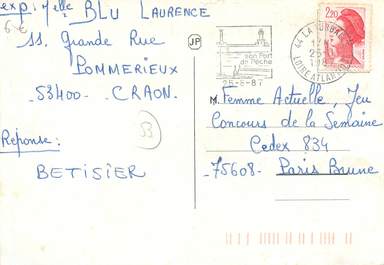 exp: Melle BLU LAURENCE
11. Grande Rue
POMMERIEUX
53400- CRAON.
53
Réponse:
BETISIER
JP
son Port
de Pêche
25-5-87
2,20
44 LA TURBALLE
LOIRE ATLANTIQUE
M. Femme Actuelle, Jeu
Concours de la Semaine
Cedex 834
-75608- Paris Brune